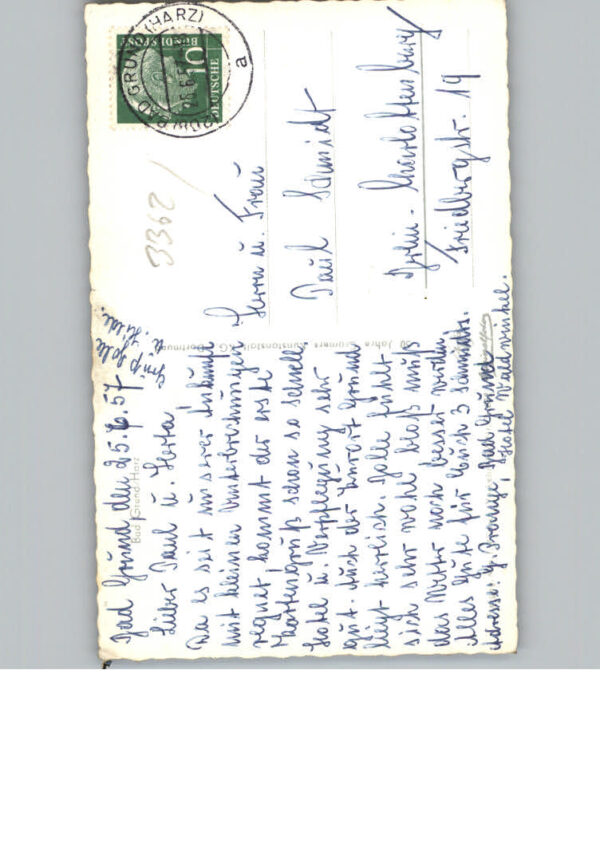 Bad Grund den 25.6.57
Lieber Paul u. Herta
Da es seit unserer Ankunft
mit kleinen Unterbrechungen
regnet kommt der erste
Kartengruß schon so schnell
Hotel u. Verpflegung sehr
gut. Auch der Kurort Grund
liegt herrlich. Jolle fühlt
sich sehr wohl bloß muß
das Wetter noch besser werden
Alles Gute für Euch 3 Schmidts.
Adresse: Bad Grund
Hotel Waldwinkel.
Gruß Jolle
u. Hilde.
Bad Grund Harz
Jahre Krämers Kunstanstalt KG Dortmund
BAD GRUND (HARZ)
a
10
DEUTSCHE
BUNDESPOST
3362
Herrn u. Frau
Paul Schmidt
Berlin-Charlottenburg
Friedbergstr. 19